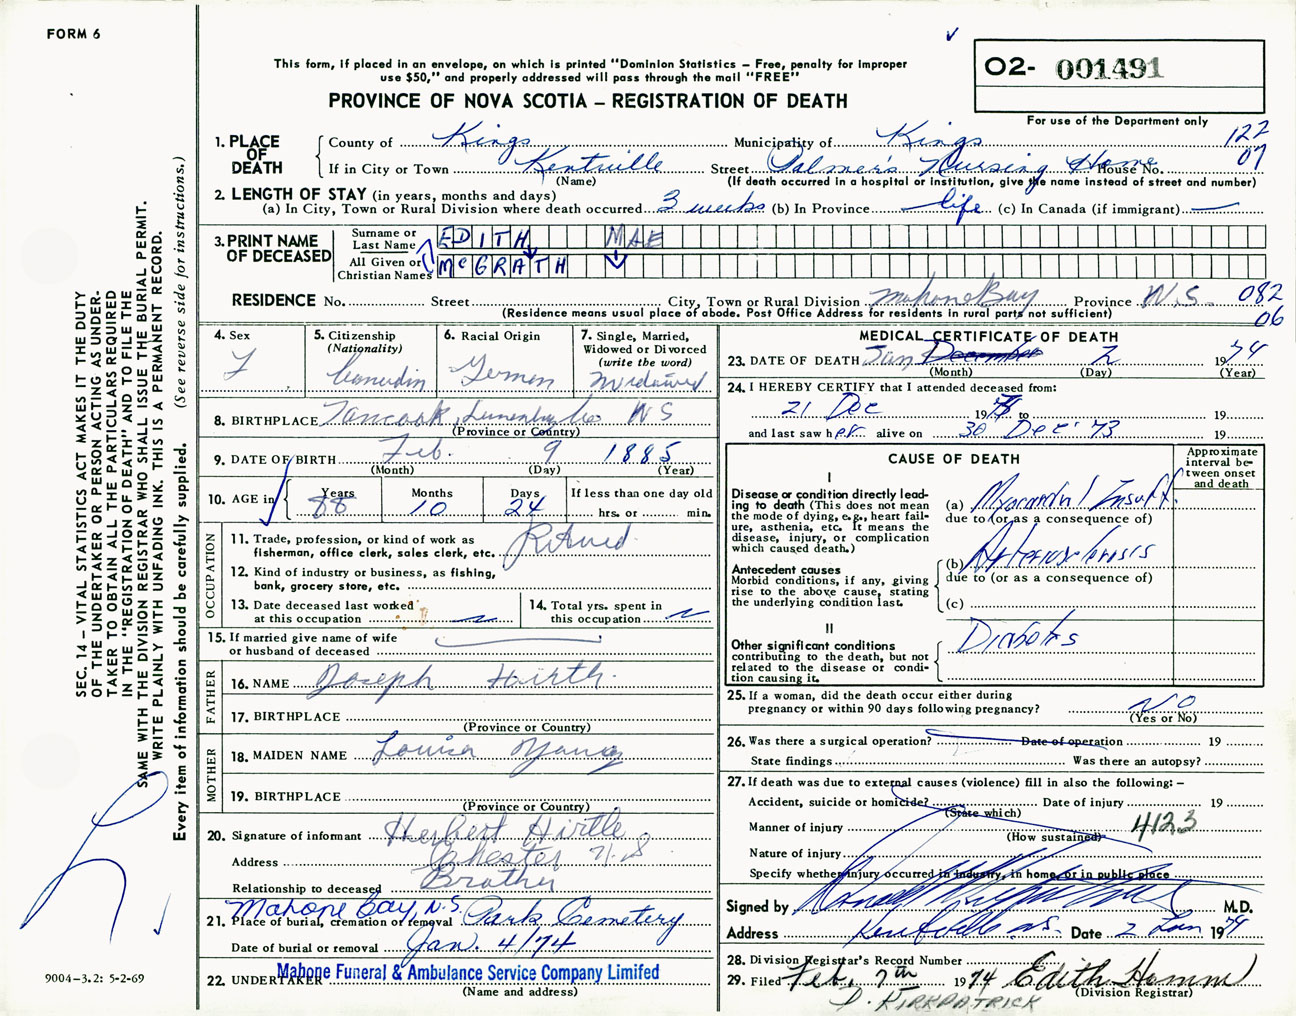 FORM 6
This form, if placed in an envelope, on which is printed "Dominion Statistics – Free, penalty for improper
use $50," and properly addressed will pass through the mail "FREE"
PROVINCE OF NOVA SCOTIA – REGISTRATION OF DEATH
O2- 001491
For use of the Department only
SEC. 14 – VITAL STATISTICS ACT MAKES IT THE DUTY
OF THE UNDERTAKER OR PERSON ACTING AS UNDER-
TAKER TO OBTAIN ALL THE PARTICULARS REQUIRED
IN THE "REGISTRATION OF DEATH" AND TO FILE THE
SAME WITH THE DIVISION REGISTRAR WHO SHALL ISSUE THE BURIAL PERMIT.
WRITE PLAINLY WITH UNFADING INK. THIS IS A PERMANENT RECORD.
Every item of information should be carefully supplied. (See reverse side for instructions.)
1. PLACE OF DEATH
County of Kings Municipality of Kings 122
If in City or Town Kentville Street Palmer's Nursing Home House No. 07
(Name) (If death occurred in a hospital or institution, give the name instead of street and number)
2. LENGTH OF STAY (in years, months and days)
(a) In City, Town or Rural Division where death occurred 3 weeks (b) In Province life (c) In Canada (if immigrant) —
3. PRINT NAME OF DECEASED
Surname or Last Name EDITH MAE
All Given or Christian Names McGRATH
RESIDENCE No. Street City, Town or Rural Division Mahone Bay Province N.S. 082
(Residence means usual place of abode. Post Office Address for residents in rural parts not sufficient) 06
4. Sex F
5. Citizenship (Nationality) Canadin
6. Racial Origin German
7. Single, Married, Widowed or Divorced (write the word) Widowed
8. BIRTHPLACE Tancook, Lunenburg Co N S
(Province or Country)
9. DATE OF BIRTH Feb. 9 1885
(Month) (Day) (Year)
10. AGE in Years 88 Months 10 Days 24 If less than one day old hrs. or min.
OCCUPATION
11. Trade, profession, or kind of work as
fisherman, office clerk, sales clerk, etc. Retired
12. Kind of industry or business, as fishing,
bank, grocery store, etc.
13. Date deceased last worked
at this occupation
14. Total yrs. spent in
this occupation
15. If married give name of wife
or husband of deceased
FATHER
16. NAME Joseph Hirtle
17. BIRTHPLACE
(Province or Country)
MOTHER
18. MAIDEN NAME Louisa Young
19. BIRTHPLACE
(Province or Country)
20. Signature of informant Herbert Hirtle
Address Chester N.S.
Relationship to deceased Brother
21. Place of burial, cremation or removal Mahone Bay, N.S. Park Cemetery
Date of burial or removal Jan. 4/74
22. UNDERTAKER Mahone Funeral & Ambulance Service Company Limited
(Name and address)
9004-3.2: 5-2-69
MEDICAL CERTIFICATE OF DEATH
23. DATE OF DEATH Jan December 2 1974
(Month) (Day) (Year)
24. I HEREBY CERTIFY that I attended deceased from:
21 Dec 1973 to 19
and last saw her alive on 30 Dec '73 19
CAUSE OF DEATH
Approximate interval between onset and death
I
Disease or condition directly lead-
ing to death (This does not mean
the mode of dying, e.g., heart fail-
ure, asthenia, etc. It means the
disease, injury, or complication
which caused death.)
(a) Myocardial Insuff.
due to (or as a consequence of)
Antecedent causes
Morbid conditions, if any, giving
rise to the above cause, stating
the underlying condition last.
(b) Arteriosclerosis
due to (or as a consequence of)
(c)
II
Other significant conditions
contributing to the death, but not
related to the disease or condi-
tion causing it.
Diabetes
25. If a woman, did the death occur either during
pregnancy or within 90 days following pregnancy? NO
(Yes or No)
26. Was there a surgical operation? Date of operation 19
State findings Was there an autopsy?
27. If death was due to external causes (violence) fill in also the following: –
Accident, suicide or homicide? Date of injury 19
(State which)
Manner of injury 4123
(How sustained)
Nature of injury
Specify whether injury occurred in industry, in home, or in public place
Signed by M.D.
Address Kentville NS. Date 2 Jan 1974
28. Division Registrar's Record Number
29. Filed Feb. 7th 1974 Edith Hamm
(Division Registrar)
D. KIRKPATRICK